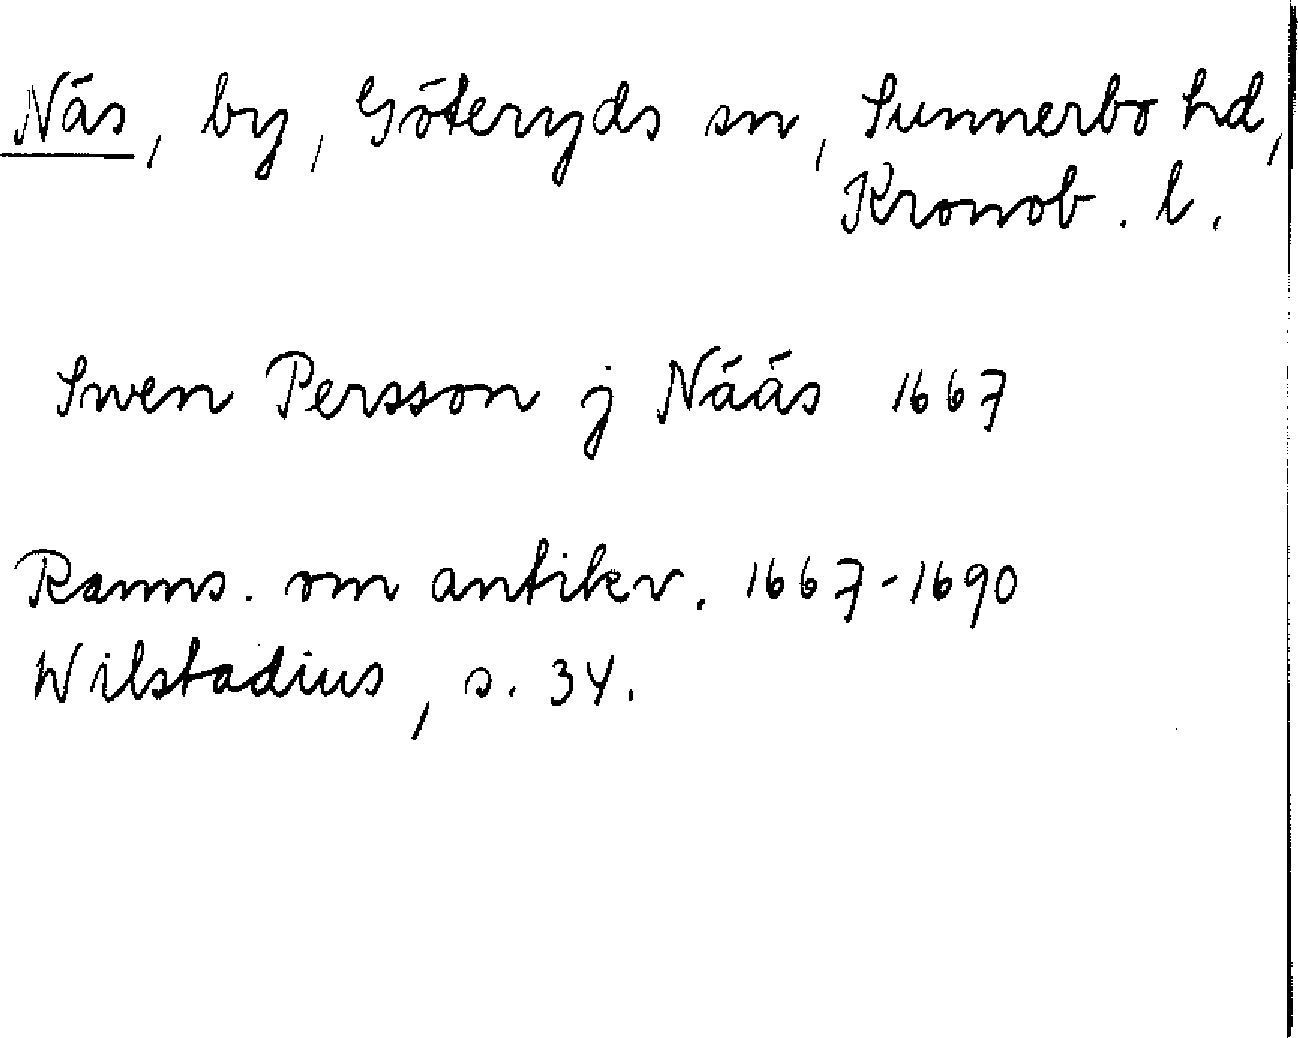 Näs, by, Göteryds sn, Sunnerbo hd,
Kronob. l.
Swen Persson j Nääs 1667
Ranns. om antikv. 1667-1690
Wilstadius, s. 34.